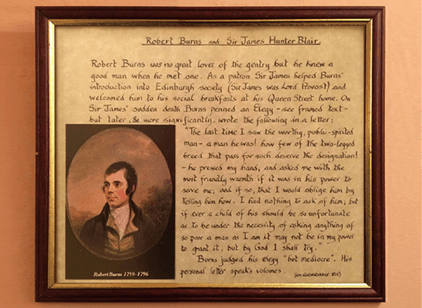 Robert Burns and Sir James Hunter Blair.
Robert Burns was no great lover of the gentry but he knew a
good man when he met one. As a patron Sir James helped Burns'
introduction into Edinburgh society (Sir James was Lord Provost) and
welcomed him to his social breakfasts at his Queen Street home. On
Sir James' sudden death Burns penned an Elegy - see framed text -
but later, & more significantly, wrote the following in a letter;
"The last time I saw the worthy, public-spirited
man - a man he was! how few of the two-legged
breed that pass for such deserve the designation!
- he pressed my hand, and asked me with the
most friendly warmth if it was in his power to
serve me; and if so, that I would oblige him by
telling him how. I had nothing to ask of him; but
if ever a child of his should be so unfortunate
as to be under the necessity of asking anything of
so poor a man as I am it may not be in my power
to grant it, but by God I shall try."
Burns judged his elegy "but mediocre". His
personal letter speaks volumes.
Robert Burns 1759-1796